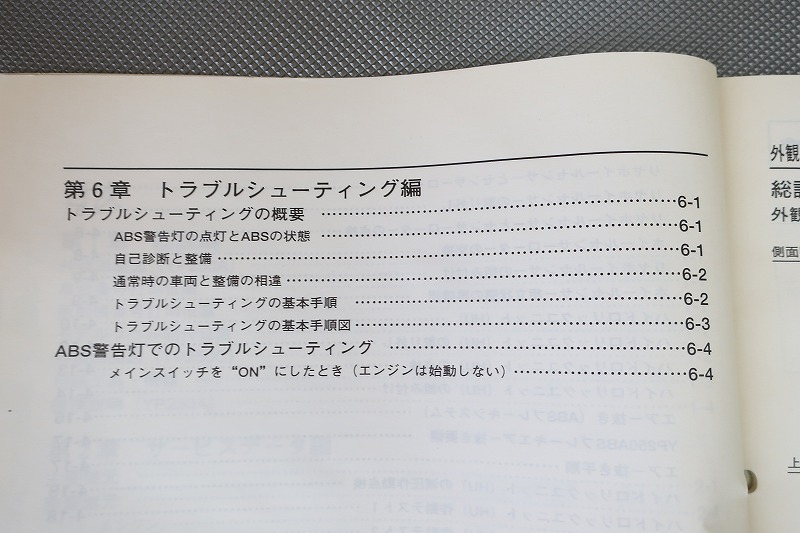 第6章 トラブルシューティング編
トラブルシューティングの概要 ……………………………………………6-1
ABS警告灯の点灯とABSの状態 ……………………………………………6-1
自己診断と整備 ……………………………………………6-1
通常時の車両と整備の相違 ……………………………………………6-2
トラブルシューティングの基本手順 ……………………………………………6-2
トラブルシューティングの基本手順図 ……………………………………………6-3
ABS警告灯でのトラブルシューティング ……………………………………………6-4
メインスイッチを“ON”にしたとき（エンジンは始動しない） ……………………………6-4
外観
外観
側面
上